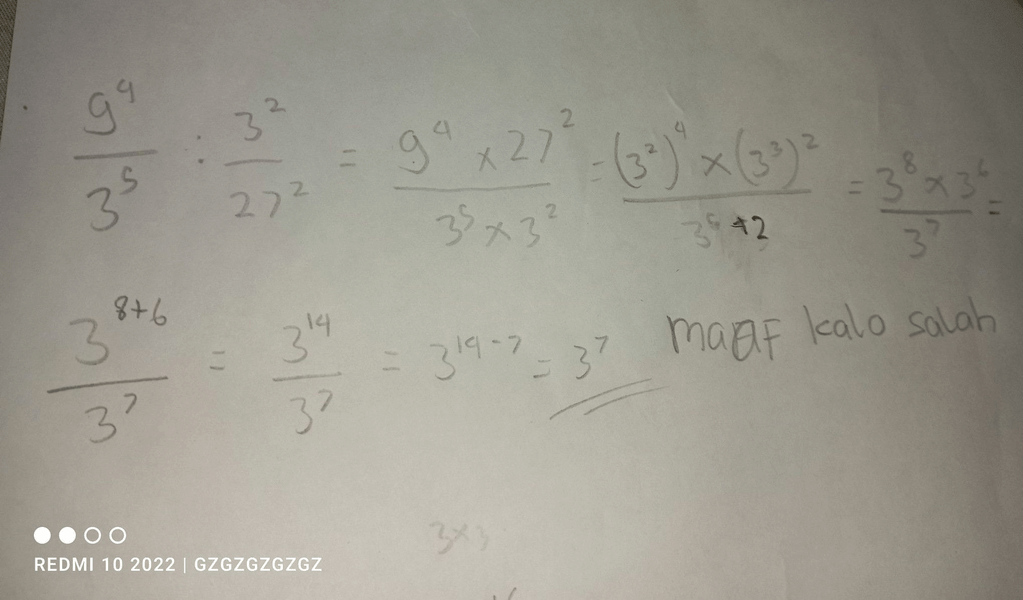 9⁴/3⁵ : 3²/27² = 9⁴ × 27²/3⁵ × 3² = (3²)⁴ × (3³)²/3⁵⁺² = 3⁸ × 3⁶/3⁷ =
3⁸⁺⁶/3⁷ = 3¹⁴/3⁷ = 3¹⁴⁻⁷ = 3⁷ maaF kalo salah
3×3
REDMI 10 2022 | GZGZGZGZGZ